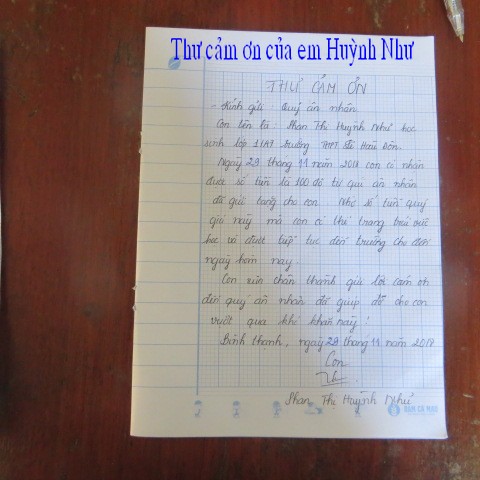 Thư cảm ơn của em Huỳnh Như
THƯ CẢM ƠN
- Kính gửi : Quý ân nhân
Con tên là : Phan Thị Huỳnh Như học
sinh lớp 11A7 trường THPT
Ngày 29 tháng 11 năm 2018 con có nhận
được số tiền là 100đô từ quí ân nhân
đã gửi tặng cho con. Nhờ số tiền quý
giá này mà con có thể trang trải việc
học và được tiếp tục đến trường cho đến
ngày hôm nay.
Con xin chân thành gửi lời cảm ơn
đến quý ân nhân đã giúp đỡ cho con
vượt qua khó khăn này !
Bình Thạnh, ngày 29 tháng 11 năm 2018
Con
Như
Phan Thị Huỳnh Như